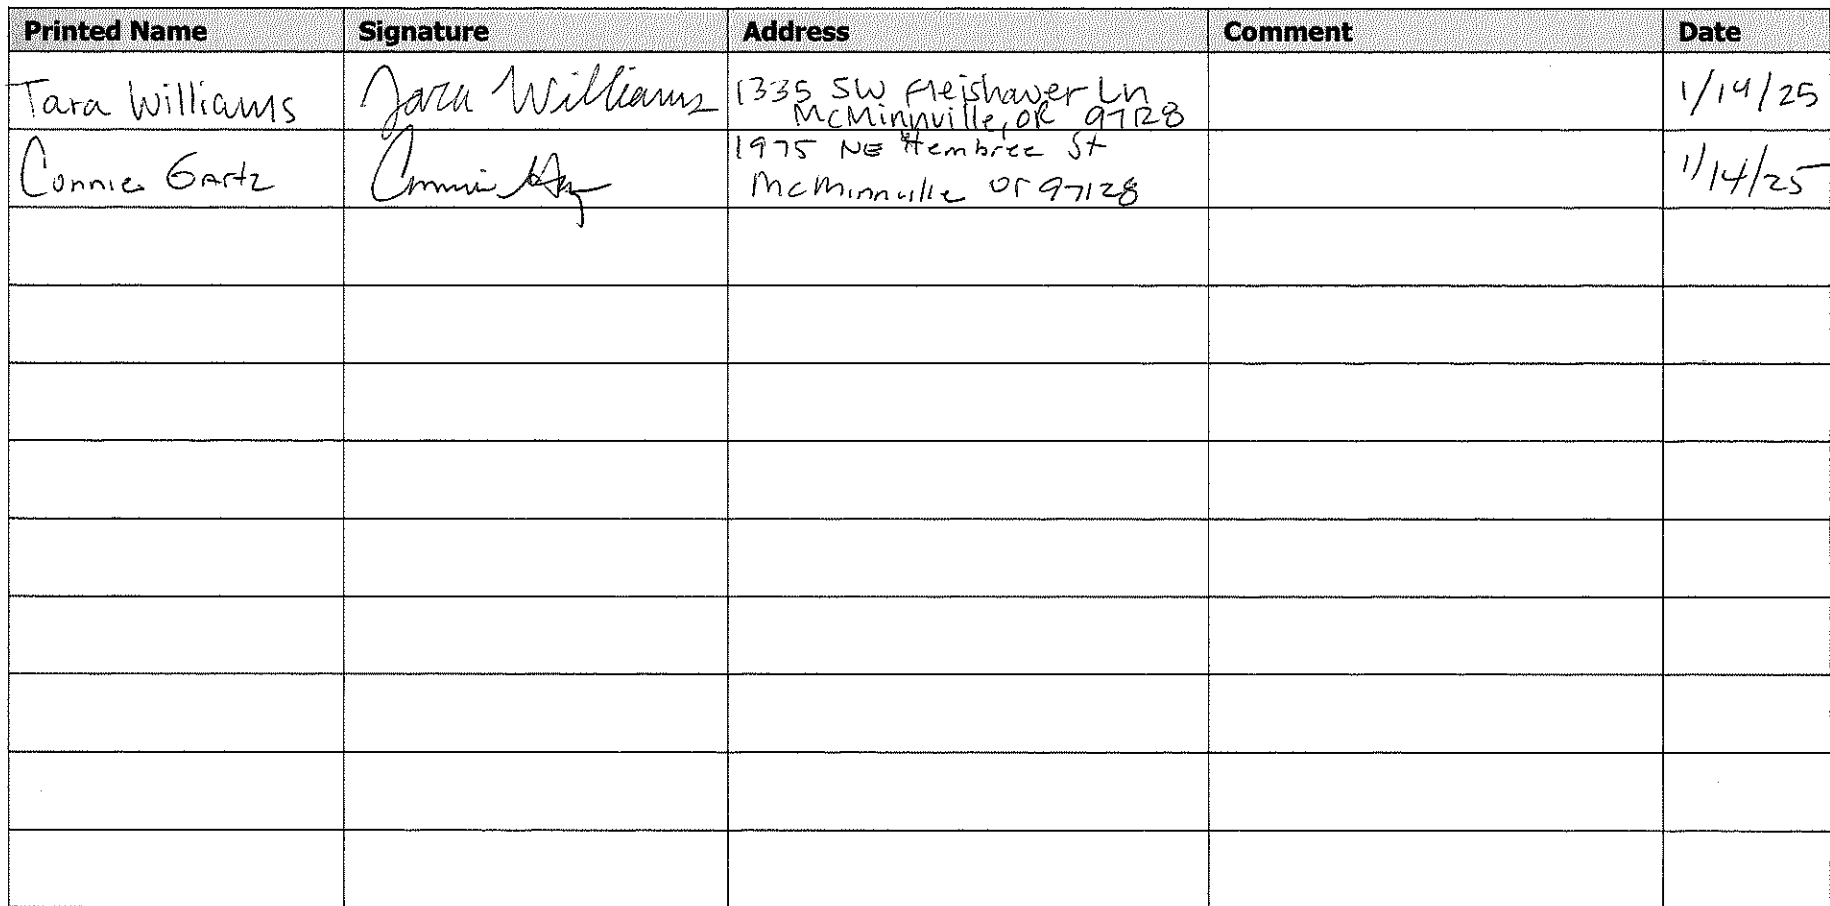 Printed Name Signature Address Comment Date
Tara Williams Tara Williams 1335 SW Fleishauer Ln 1/14/25
McMinnville, OR 97128
Connie Gartz Connie 1975 NE Hembree St 1/14/25
McMinnville Or 97128